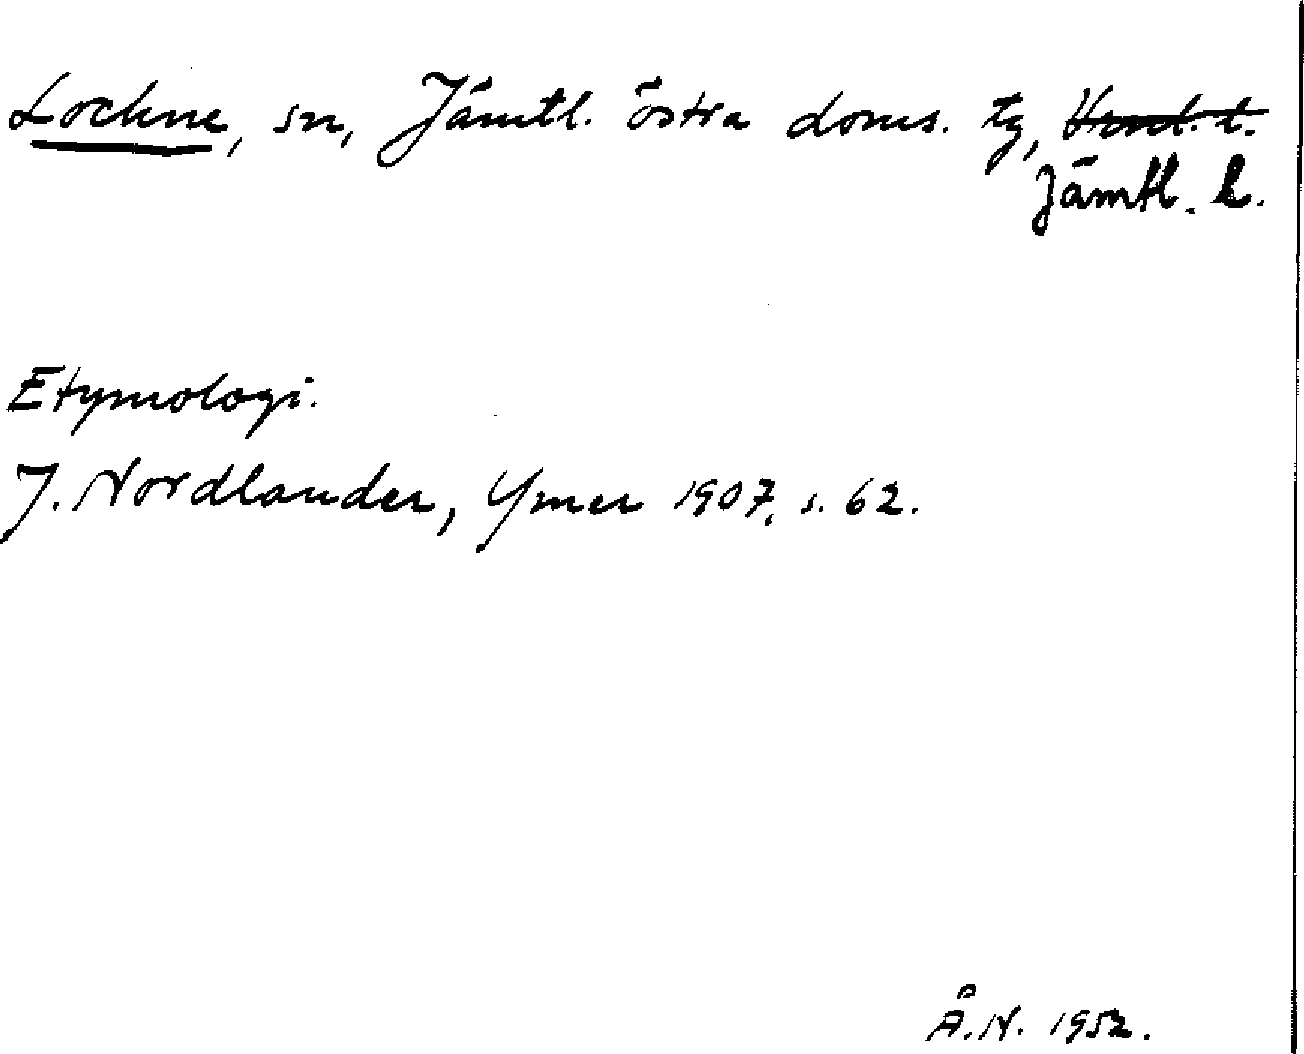 Lockne, sn, Jämtl. östra doms. tg,
Jämtl. l.
Etymologi.
J. Nordlander, Ymer 1907, s. 62.
Å.N. 1952.